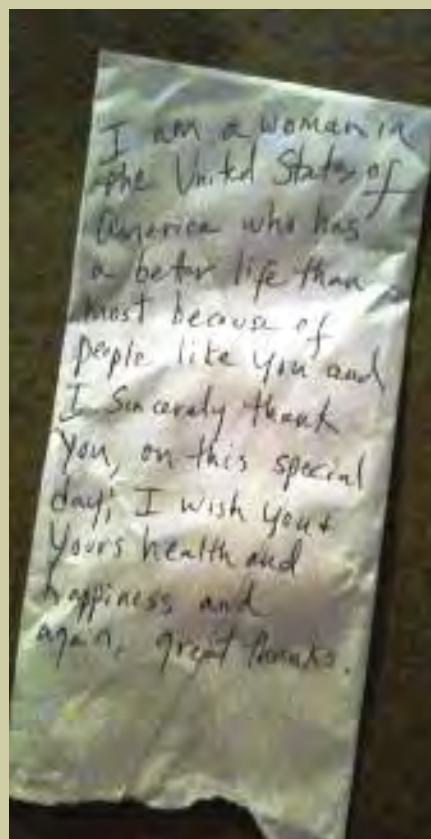 I am a woman in
the United States of
America who has
a better life than
most because of
people like you and
I Sincerely thank
you, on this special
day; I wish you +
yours health and
happiness and
again, great thanks.